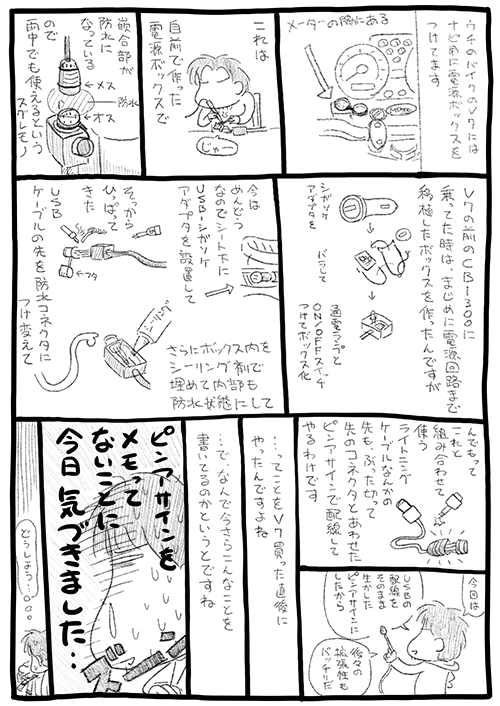 ウチのバイクのV7には
ナビ用に電源ボックスを
つけてます
メーターの間にある
これは
自前で作った
電源ボックスで
じゅー
嵌合部が
防水に
なっている
メス
防水
オス
ので
雨中でも使えるという
スグレモノ
V7の前のCB1300に
乗ってた時は、まじめに電源回路まで
移植したボックスを作ったんですが
シガソケ
アダプタを
バラして
通電ランプと
ON/OFFスイッチ
つけてボックス化
今は
めんどう
なのでシート下に
USB-シガソケ
アダプタを設置して
そっから
ひっぱって
きた
USB
ケーブルの先を防水コネクタに
つけ変えて
フタ
シーリング
さらにボックス内を
シーリング剤で
埋めて内部も
防水状態にして
んでもって
これと
組み合わせて
使う
ライトニング
ケーブルなんかの
先も、ぶった切って
先のコネクタとあわせた
ピンアサインで配線して
やるわけです
今回は
USBの
配線を
そのまま
生かした
ピンアサインに
したから
後々の
拡張性も
バッチリだ
…ってことをV7買った直後に
やったんですよね
…で、なんで今さらこんなことを
書いてるのかというとですね
ピンアサインを
メモって
ないことに
今日気づきました…
どうしよう…